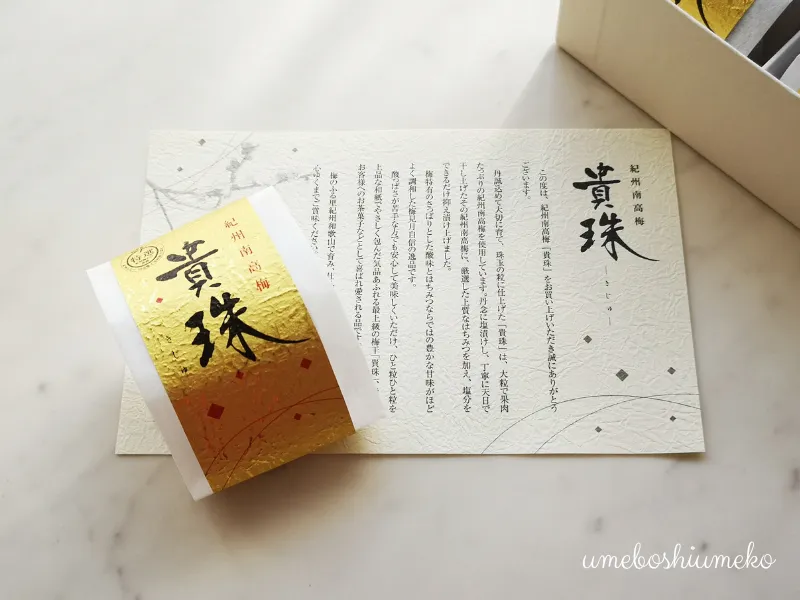 紀州南高梅
貴珠
―きじゅ―
この度は、紀州南高梅「貴珠」をお買い上げいただき誠にありがとう
ございます。
丹誠込めて大切に育て、珠玉の粒に仕上げた「貴珠」は、大粒で果肉
たっぷりの紀州南高梅を使用しています。丹念に塩漬けし、丁寧に天日で
干し上げたその紀州南高梅に、厳選した上質なはちみつを加え、塩分を
できるだけ抑え漬け上げました。
梅特有のさっぱりとした酸味とはちみつならではの豊かな甘味がほど
よく調和した梅見月自信の逸品です。
酸っぱさが苦手な方でも安心して美味しくいただけ、ひと粒ひと粒を
上品な和紙でやさしく包んだ気品あふれる最上級の梅干「貴珠」
お客様へのお茶菓子などとして喜ばれ愛される品です
梅のふる里紀州和歌山で育み、生
心ゆくまでご賞味ください
特選
紀州南高梅
貴珠
きじゅ
umeboshiumeko